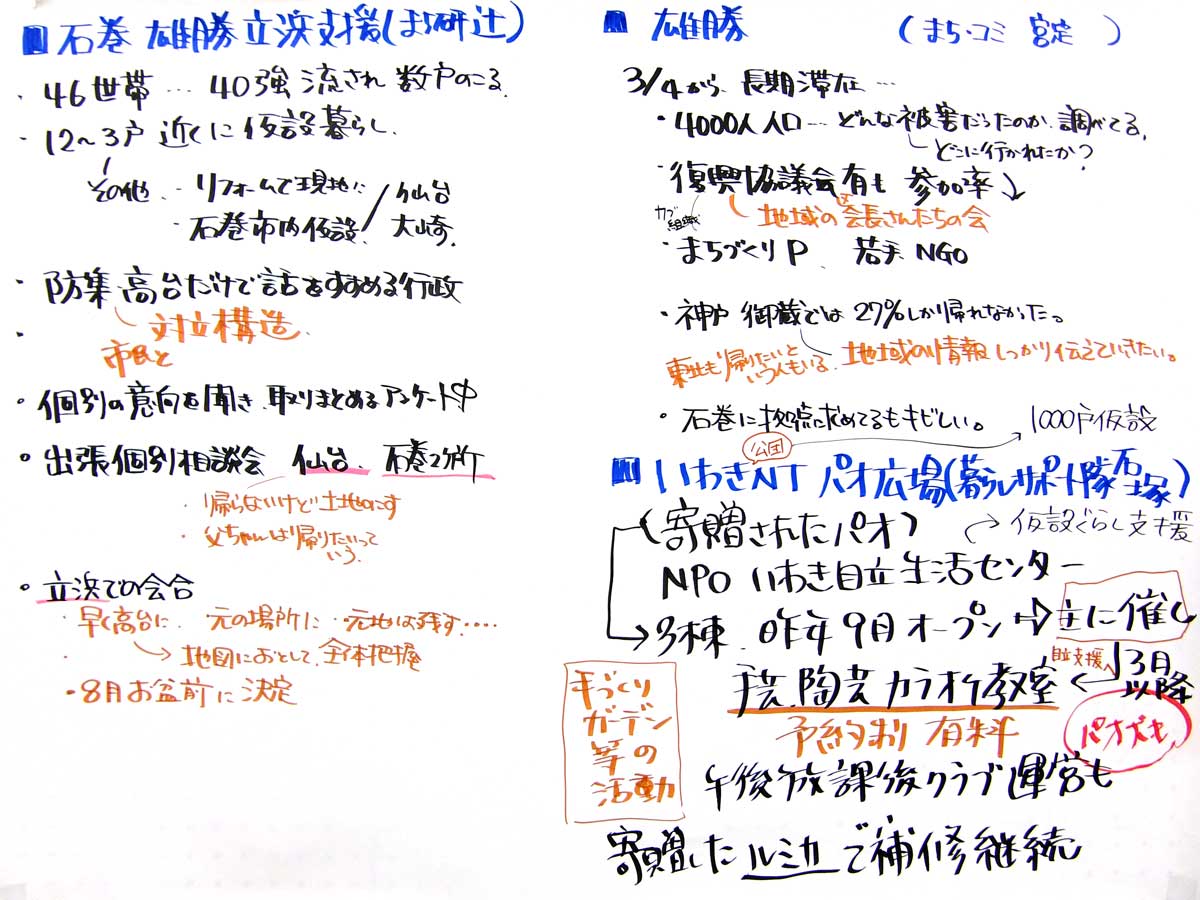 ■石巻 雄勝 立浜支援(まち研 辻)
・46世帯…40強流され 数戸のこる.
・12〜3戸 近くに仮設暮らし.
その他・リフォームで現地に / 仙台
・石巻市内仮設. 大崎.
・防集 高台だけで話をすすめる行政
・対立構造.
市民と
・個別の意向を聞き、取りまとめるアンケート中
・出張個別相談会 仙台. 石巻2ヶ所
・帰らないけど土地のこす
・父ちゃんは帰りたいって
いう.
・立浜での会合
・早く高台に. ・元の場所に・元地は残す・・・・
・→地図におとして、全体把握
・8月お盆前に決定
■ 雄勝 (まち・コミ 宮定 )
3/4から、長期滞在…
・4000人人口…どんな被害だったのか、調べてる.
どこに行かれたか?
・復興協議会有も 参加率↘
地域の会長さんたちの会
・まちづくりP. 若手NGO
・神戸 御蔵では 27%しか帰れなかった。
東北も帰りたいと
いう人もいる. 地域の情報しっかり伝えていきたい。
・石巻に拠点求めてるもキビしい。
公団 → 1000戸仮設
■いわきNT パオ広場(暮らしサポート隊 石塚)
(寄贈されたパオ) → 仮設ぐらし支援
NPO いわき自立生活センター
→3棟. 昨年9月オープン ⇨ 主に催し
手芸、陶芸 カラオケ教室 ← 自立支援へ 3月
以降
予約制 有料
パオズも
手づくり
ガーデン
等の
活動
午後放課後クラブ運営も
寄贈した ルミカーで補修継続